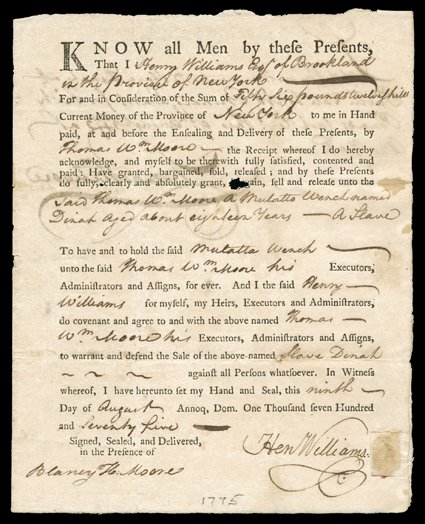 KNOW all Men by theſe Preſents,
That I Henry Williams Esqr. of Brookland
in the Province of New York
For and in Conſideration of the Sum of Fifty Six pounds twelve ſhills
Current Money of the Province of New York to me in Hand
paid, at and before the Enſealing and Delivery of theſe Preſents, by
Thomas Wm. Moore the Receipt whereof I do hereby
acknowledge, and myſelf to be therewith fully ſatisfied, contented and
paid: Have granted, bargained, ſold, releaſed; and by theſe Preſents
do fully, clearly and abſolutely grant, ſell and releaſe unto the
Said Thomas Wm. Moore, a Mulatta Wench named
Dinah Aged about eighteen Years — A Slave
To have and to hold the ſaid Mulatta Wench
unto the ſaid Thomas Wm. Moore his Executors,
Adminiſtrators and Aſſigns, for ever. And I the ſaid Henry
Williams for myſelf, my Heirs, Executors and Adminiſtrators,
do covenant and agree to and with the above named Thomas
Wm. Moore his Executors, Adminiſtrators and Aſſigns,
to warrant and defend the Sale of the above-named Slave Dinah
~ ~ ~ againſt all Perſons whatſoever. In Witneſs
whereof, I have hereunto ſet my Hand and Seal, this ninth
Day of August Annoq, Dom. One Thouſand ſeven Hundred
and Seventy five
Signed, Sealed, and Delivered,
in the Preſence of
Hen Williams.
Blaney H. Moore
1775